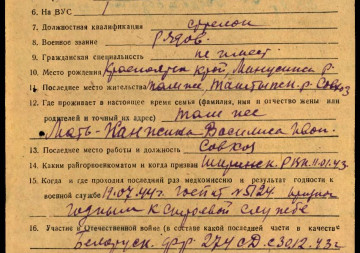 6. На ВУС
7. Должностная квалификация стрелок
8. Военное звание Рядов.
9. Гражданская специальность не имеет
10. Место рождения Красноярск край, Минусинск р.
11. Последнее место жительства р. Совхоз
12. Где проживает в настоящее время семья (фамилия, имя и отчество жены или
родителей и точный их адрес) там же
Мать - Василиса Иван.
13. Последнее место работы и должность Совхоз
14. Каким райгорвоенкоматом и когда призван РВК 11.01.43г.
15. Когда и где проходил последний раз медкомиссию и результат годности к
военной службе 19.07.44г. госпит №5124 признан
годным к строевой службе
16. Участие в Отечественной войне (в составе какой последней части в качестве
Белорусск. фр. 274 сд. с 30/12.43г